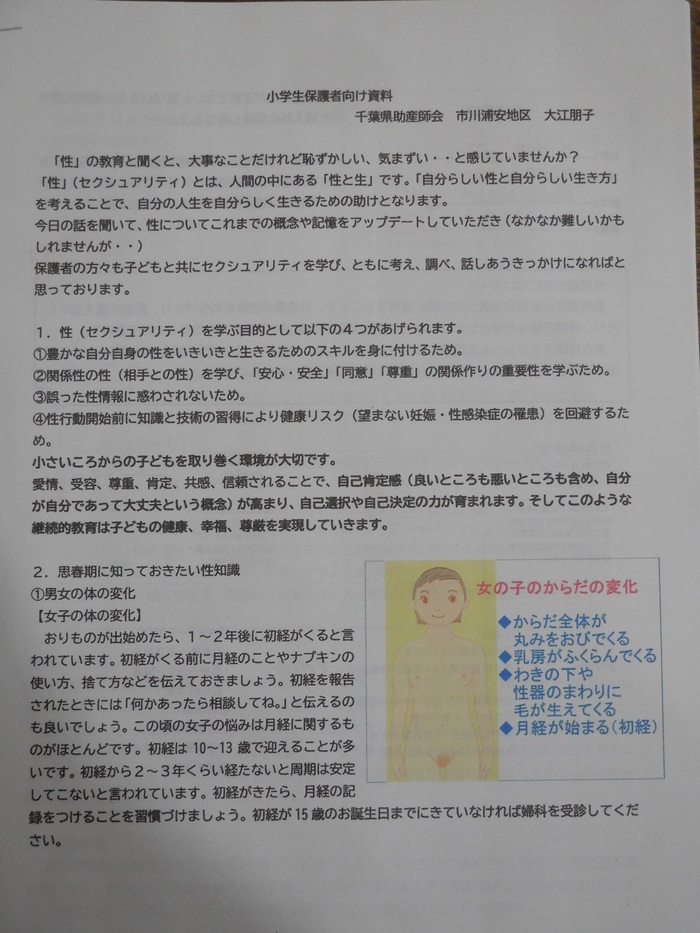 小学生保護者向け資料
千葉県助産師会　市川浦安地区　大江朋子
「性」の教育と聞くと、大事なことだけれど恥ずかしい、気まずい・・と感じていませんか？
「性」（セクシュアリティ）とは、人間の中にある「性と生」です。「自分らしい性と自分らしい生き方」
を考えることで、自分の人生を自分らしく生きるための助けとなります。
今日の話を聞いて、性についてこれまでの概念や記憶をアップデートしていただき（なかなか難しいかも
しれませんが・・）
保護者の方々も子どもと共にセクシュアリティを学び、ともに考え、調べ、話しあうきっかけになればと
思っております。
１．性（セクシュアリティ）を学ぶ目的として以下の４つがあげられます。
①豊かな自分自身の性をいきいきと生きるためのスキルを身に付けるため。
②関係性の性（相手との性）を学び、「安心・安全」「同意」「尊重」の関係作りの重要性を学ぶため。
③誤った性情報に惑わされないため。
④性行動開始前に知識と技術の習得により健康リスク（望まない妊娠・性感染症の罹患）を回避するた
め。
小さいころからの子どもを取り巻く環境が大切です。
愛情、受容、尊重、肯定、共感、信頼されることで、自己肯定感（良いところも悪いところも含め、自分
が自分であって大丈夫という概念）が高まり、自己選択や自己決定の力が育まれます。そしてこのような
継続的教育は子どもの健康、幸福、尊厳を実現していきます。
２．思春期に知っておきたい性知識
①男女の体の変化
【女子の体の変化】
おりものが出始めたら、１～２年後に初経がくると言
われています。初経がくる前に月経のことやナプキンの
使い方、捨て方などを伝えておきましょう。初経を報告
されたときには「何かあったら相談してね。」と伝えるの
も良いでしょう。この頃の女子の悩みは月経に関するも
のがほとんどです。初経は 10～13 歳で迎えることが多
いです。初経から２～３年くらい経たないと周期は安定
してこないと言われています。初経がきたら、月経の記
録をつけることを習慣づけましょう。初経が 15 歳のお誕生日までにきていなければ婦科を受診してくだ
さい。
女の子のからだの変化
◆からだ全体が
丸みをおびてくる
◆乳房がふくらんでくる
◆わきの下や
性器のまわりに
毛が生えてくる
◆月経が始まる（初経）